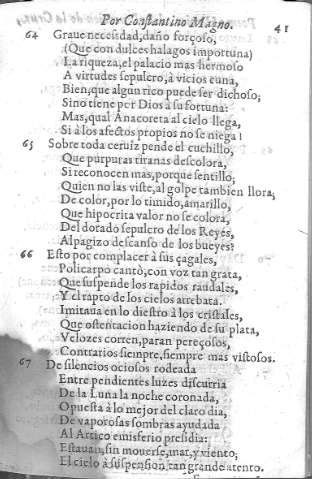 Por Constantino Magno. 41
64 Graue necessidad, daño forçoso,
(Que con dulces halagos importuna)
La riqueza, el palacio mas hermoso
A virtudes sepulcro, à vicios cuna,
Bien, que algun rico puede ser dichoso,
Sino tiene por Dios à su fortuna:
Mas, qual Anacoreta al cielo llega,
Si à los afectos propios no se niega!
65 Sobre toda ceruiz pende el cuchillo,
Que purpuras tiranas descolora,
Si reconocen mas, porque sentillo,
Quien no las viste, al golpe tambien llora;
De color, por lo timido, amarillo,
Que hipocrita valor no se colora,
Del dorado sepulcro de los Reyes,
Al pagizo descanso de los bueyes?
66 Esto por complacer à sus çagales,
Policarpo cantò, con voz tan grata,
Que suspende los rapidos raudales,
Y el rapto de los cielos arrebata.
Imitaua en lo diestro à los cristales,
Que ostentacion haziendo de su plata,
Velozes corren, paran pereçosos,
Contrarios siempre, siempre mas vistosos.
67 De silencios ociosos rodeada
Entre pendientes luzes discurria
De la Luna la noche coronada,
Opuesta à lo mejor del claro dia,
De vaporosas sombras ayudada
Al Artico emisferio presidia:
Estauan, sin mouerse, mar, y viento,
El cielo à suspension tan grande atento.